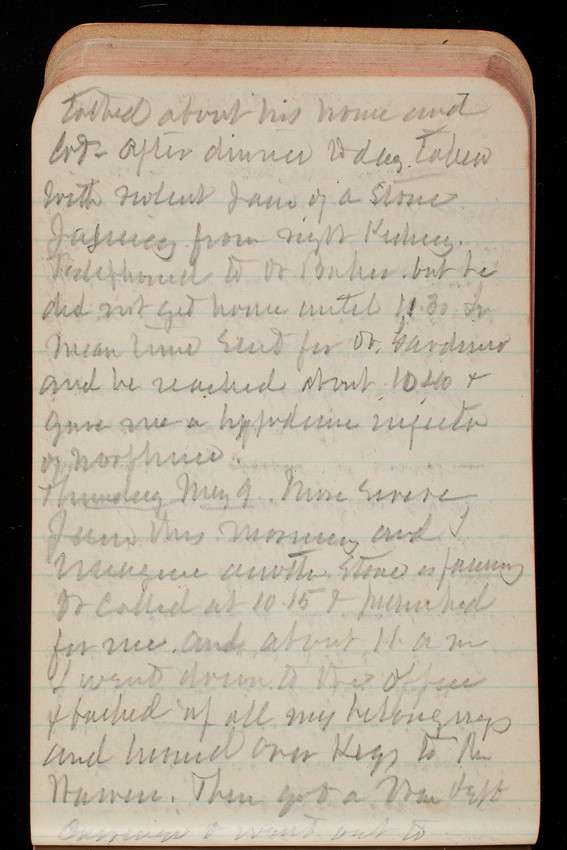 talked about his home and
lot. After dinner today taken
with violent pain of a stone
passing from right Kidney.
Telephoned to Dr Baker but he
did not get home until 11 30 In
mean time sent for Dr. Gardner
and he reached about 10 40 &
gave me a hypodermic injection
of morphine.
Thursday May 9. More severe
pain this morning and I
imagine another stone is passing
Dr called at 10 15 & prescribed
for me. and about 11 a m
I went down to the office
& packed up all my belongings
and turned over Keys to
. Then got a War Dept
Carriage & went out to